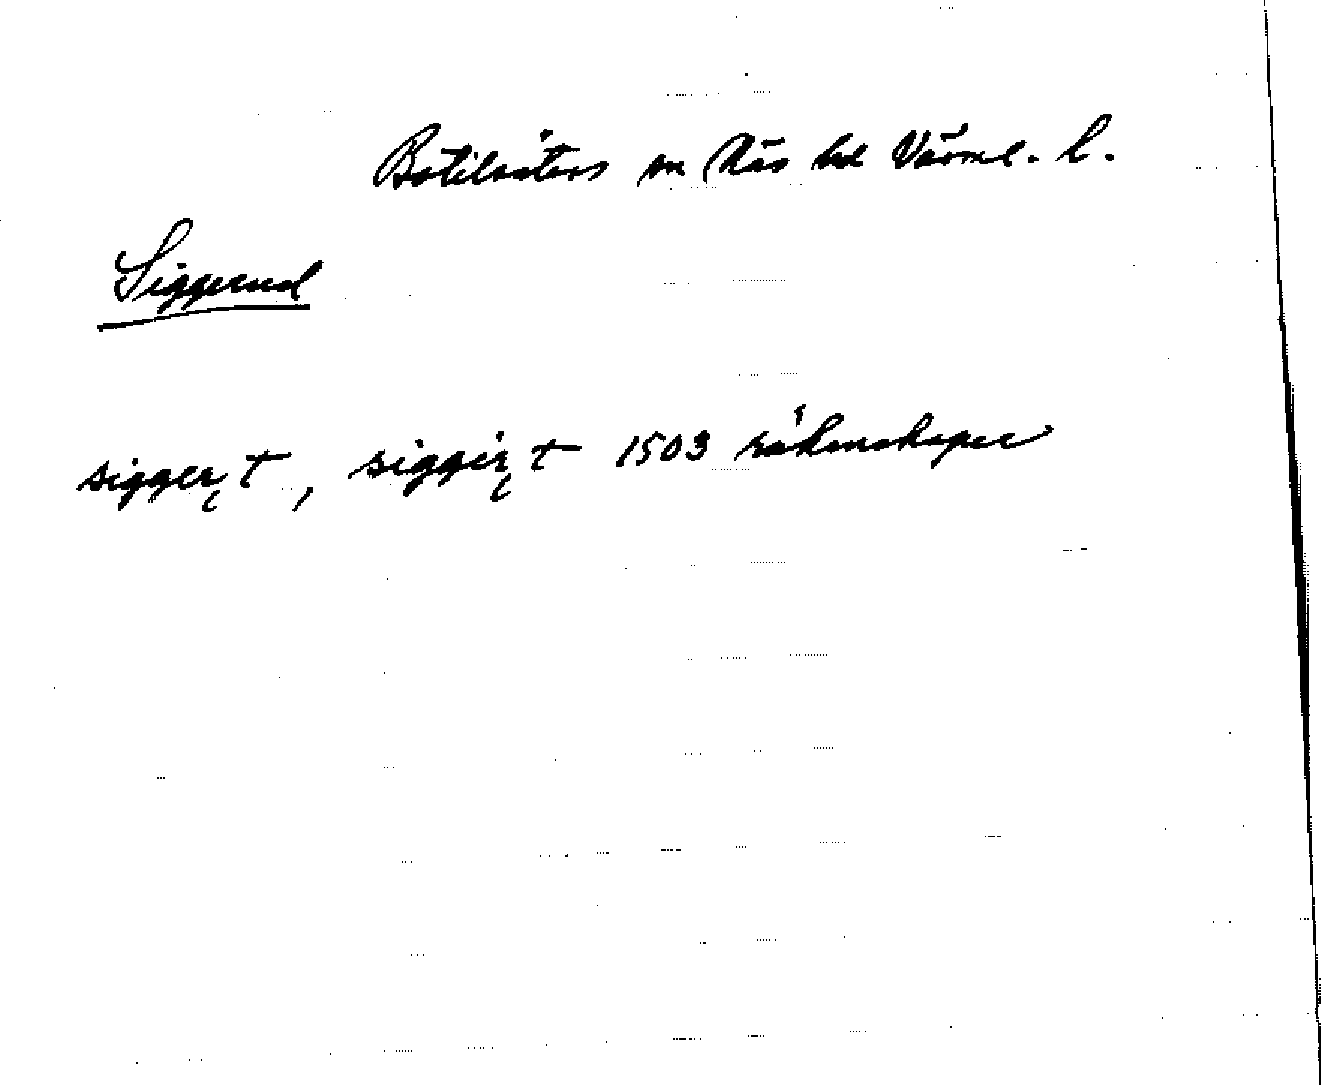 Botilsäters sn Näs hd Värml. l.
Siggerud
siggerꞇ t, siggirꞇ t 1503 räkenskaper